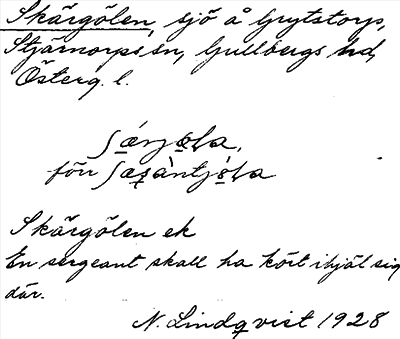 Skärgölen, sjö å Grytstorp,
Stjärnorps sn, Gullbergs hd,
Österg. l.
ʃæ̀rjø̀la,
förr ʃæṣàntjø̀la
Skärgölen ek
En sergeant skall ha kört ihjäl sig
där.
N. Lindqvist 1928